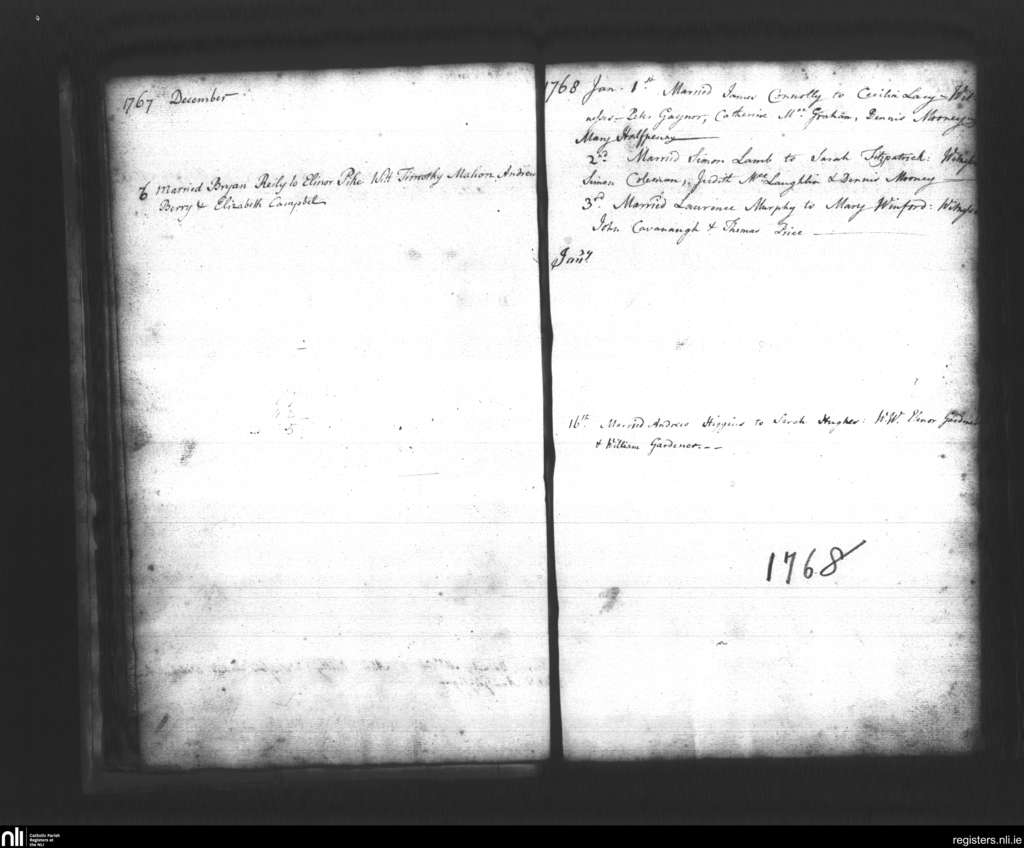 1767 December
6 Married Bryan Reily to Elinor Pike Witt Timothy Mahon Andrew
Berry & Elizabeth Campbel
1768 Jan. 1st Married James Connolly to Cecilia Lacy – Wit
nesses – Peter Gaynor, Catherine Mc Graham, Dennis Mooney
Mary Halfpenny
2nd Married Simon Lamb to Sarah Fitzpatrick: Witnesses
Simon Coleman, Judith McLaughlin & Dennis Mooney
3rd Married Laurence Murphy to Mary Winford: Witnesses
John Cavanaugh & Thomas Price
Jany
16th Married Andrew Higgins to Sarah Hughes: Elinor Gardner
& William Gardener
1768
nli Catholic Parish
Registers at
the NLI
registers.nli.ie